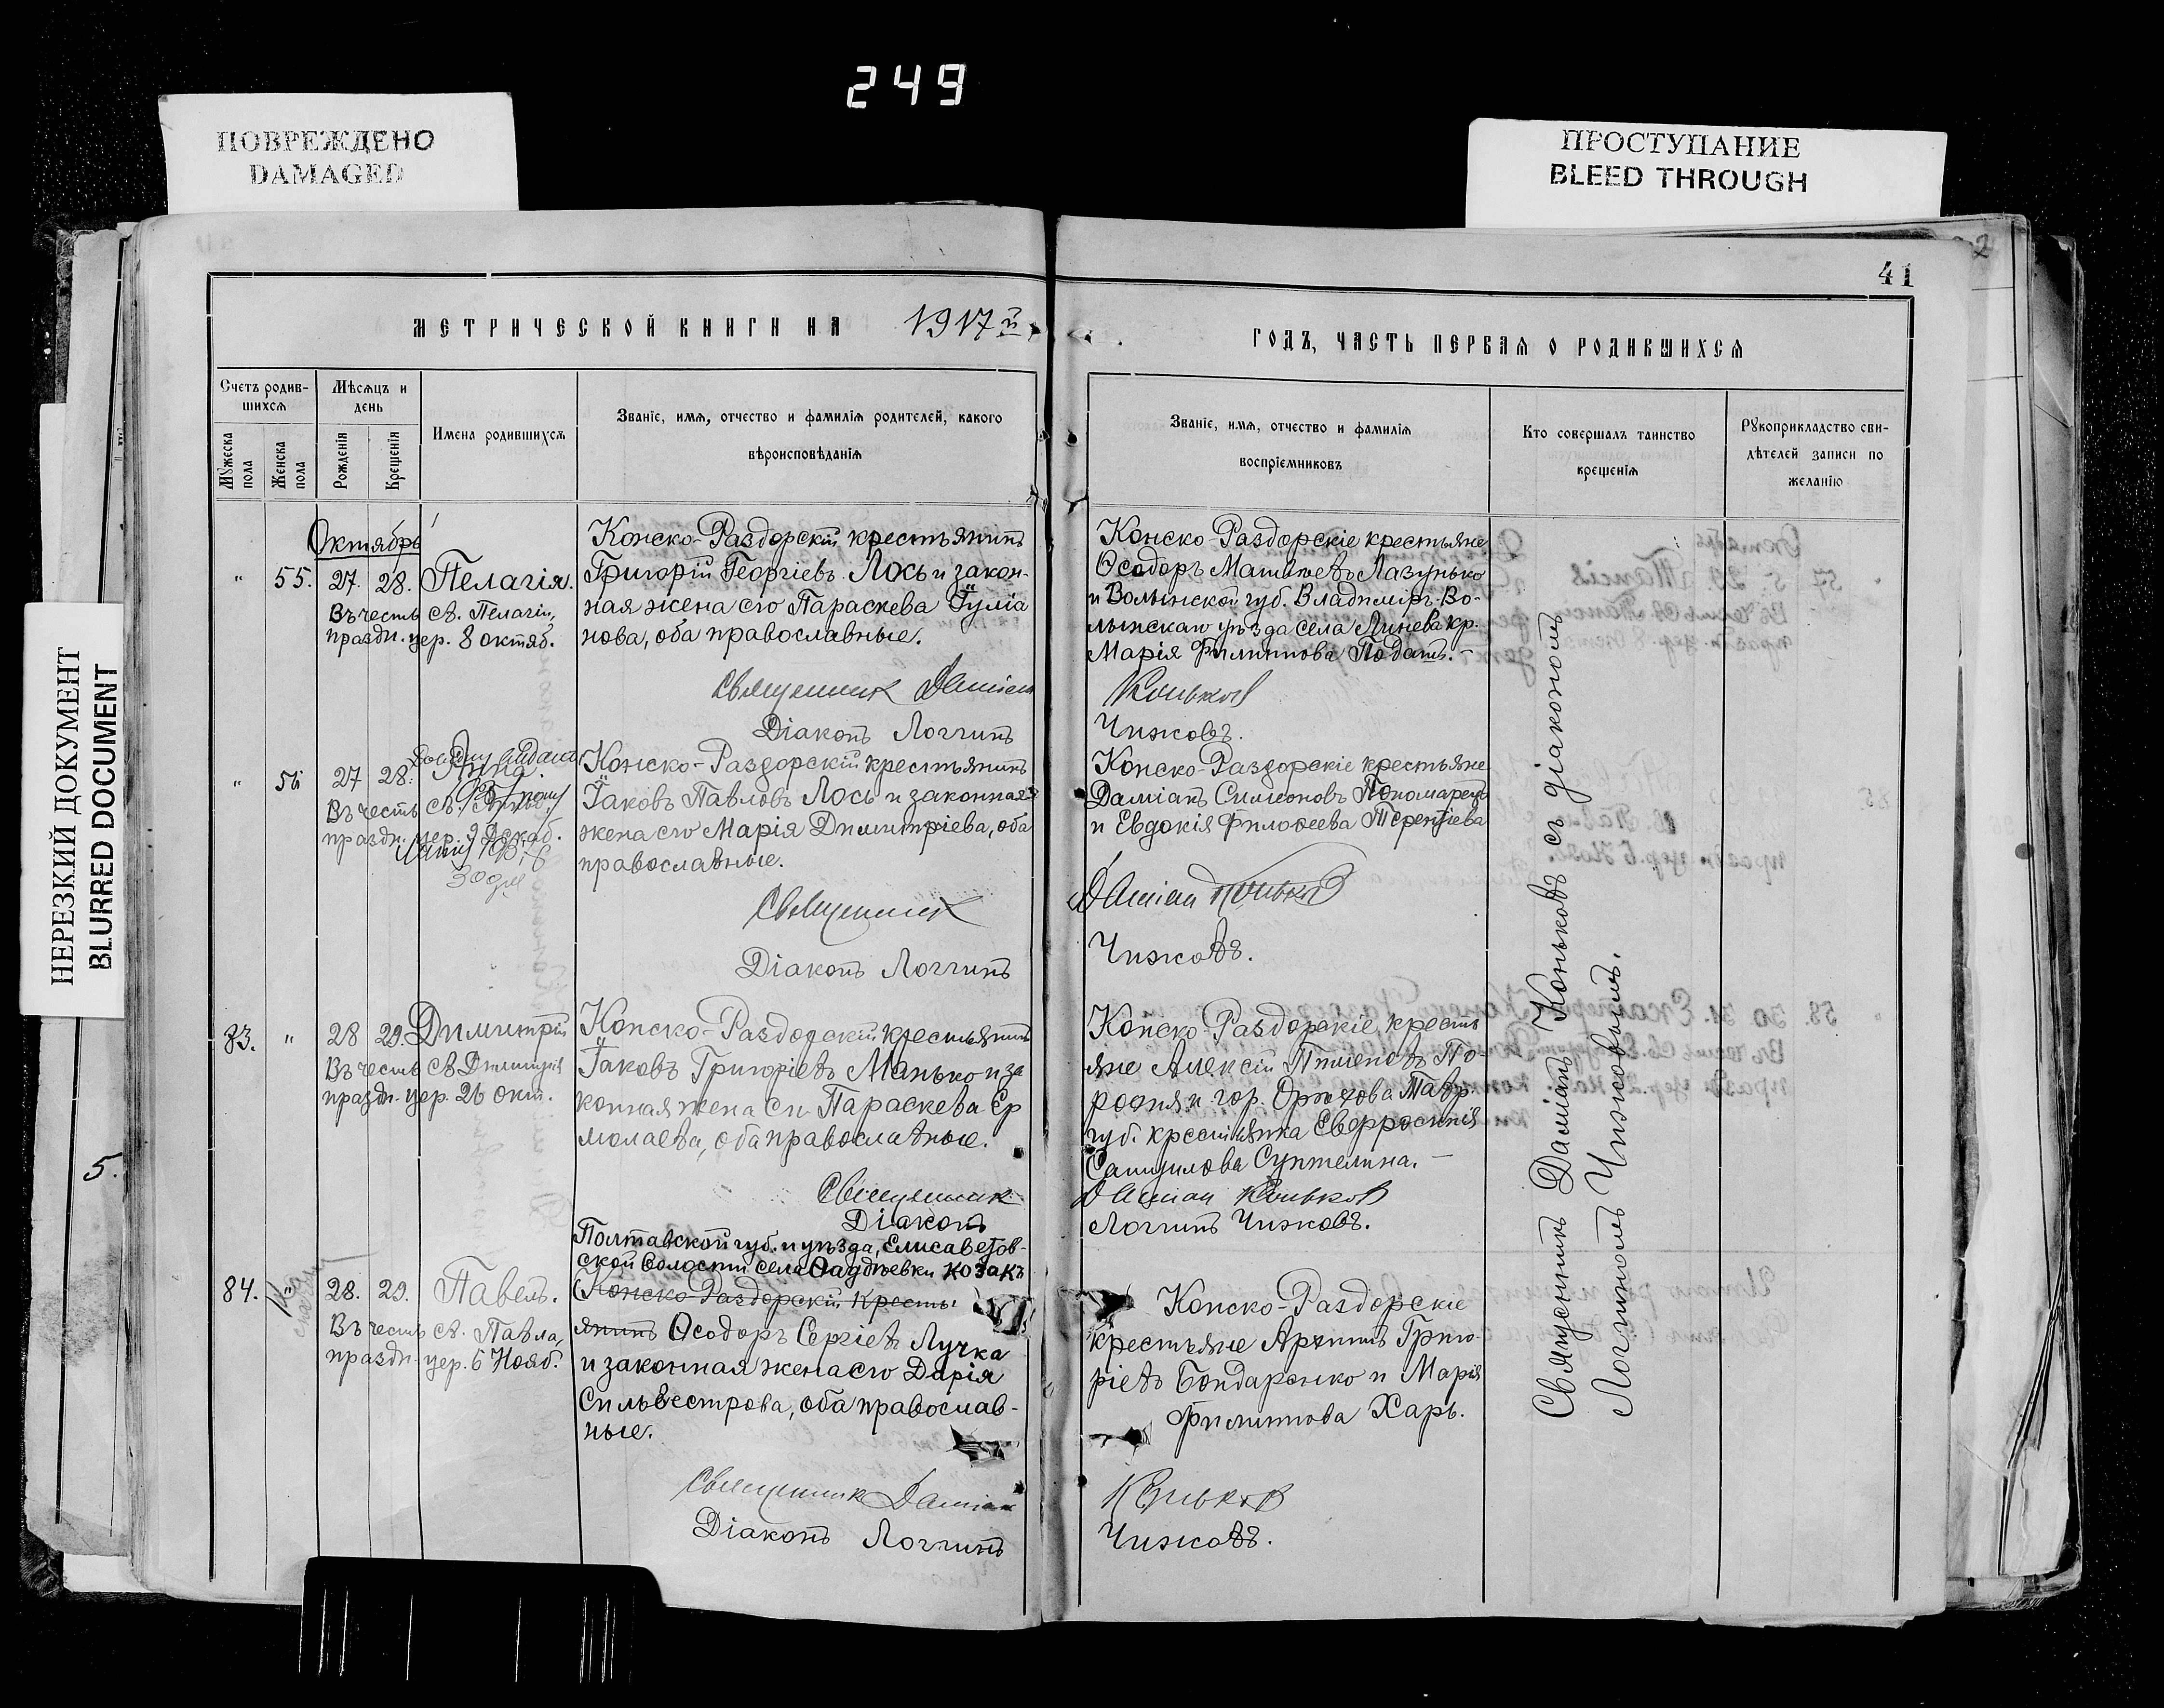 249
ПОВРЕЖДЕНО
DAMAGED
ПРОСТУПАНИЕ
BLEED THROUGH
НЕРЕЗКИЙ ДОКУМЕНТ
BLURRED DOCUMENT
5.
2
41
МЕТРИЧЕСКОЙ КНИГИ НА 1917й
ГОДЪ, ЧАСТЬ ПЕРВАЯ О РОДИВШИХСЯ
Счетъ родив-
шихся
Мужеска
пола
Женска
пола
Мѣсяцъ и
день
Рожденія
Крещенія
Имена родившихся
Званіе, имя, отчество и фамилія родителей, какого
вѣроисповѣданія
Званіе, имя, отчество и фамилія
воспріемниковъ
Кто совершалъ таинство
крещенія
Рукоприкладство сви-
дѣтелей записи по
желанію
Октябрь
" 55. 27. 28. Пелагія.
Въ честь св. Пелагіи,
праздн. цер. 8 октяб.
Конско-Раздорскій крестьянинъ
Григорій Георгіевъ Лось и закон-
ная жена его Параскева Іуліа
нова, оба православные.
Священникъ Даміанъ
Діаконъ Логгинъ
Конско-Раздорскіе крестьяне
Ѳеодоръ Матвѣевъ Лазунько
и Волынской губ. Владиміръ-Во-
лынскаго уѣзда села Линева кр.
Марія Филиппова
Коньковъ
Чижовъ.
" 56 27 28. Анна.
Въ честь св. Анны,
праздн. цер. 9 Декаб.
Конско-Раздорскій крестьянинъ
Іаковъ Павловъ Лось и законная
жена его Марія Димитріева, оба
православные.
Священникъ
Діаконъ Логгинъ
Конско-Раздорскіе крестьяне
Даміанъ Симеоновъ Пономаренко
и Евдокія Филоѳеева Терентіева
Даміанъ Коньковъ
Чижовъ.
83. " 28 29. Димитрій
Въ честь св. Димитрія
праздн. цер. 26 окт.
Конско-Раздорскій крестьянинъ
Іаковъ Григоріевъ Манько и за
конная жена его Параскева Ер
молаева, оба православные.
Священникъ
Діаконъ
Конско-Раздорскіе кресть
яне Алексій Пименовъ По-
и гор. Орѣхова Тавр.
губ. крестьянка Евфросинія
Самуилова
Даміанъ Коньковъ
Логгинъ Чижовъ.
84. " 28. 29. Павелъ.
Въ честь св. Павла,
праздн. цер. 6 Нояб.
Полтавской губ. и уѣзда, Елисаветов-
ской волости села козакъ
Конско-Раздорскій кресть
янинъ Ѳеодоръ Сергіевъ Лучка
и законная жена его Дарія
Сильвестрова, оба православ-
ные.
Священникъ Даміанъ
Діаконъ Логгинъ
Конско-Раздорскіе
крестьяне Архипъ Григо-
ріевъ Бондаренко и Марія
Филиппова Харь.
Коньковъ
Чижовъ.
Священникъ Даміанъ Коньковъ съ діакономъ
Логгиномъ Чижовымъ.